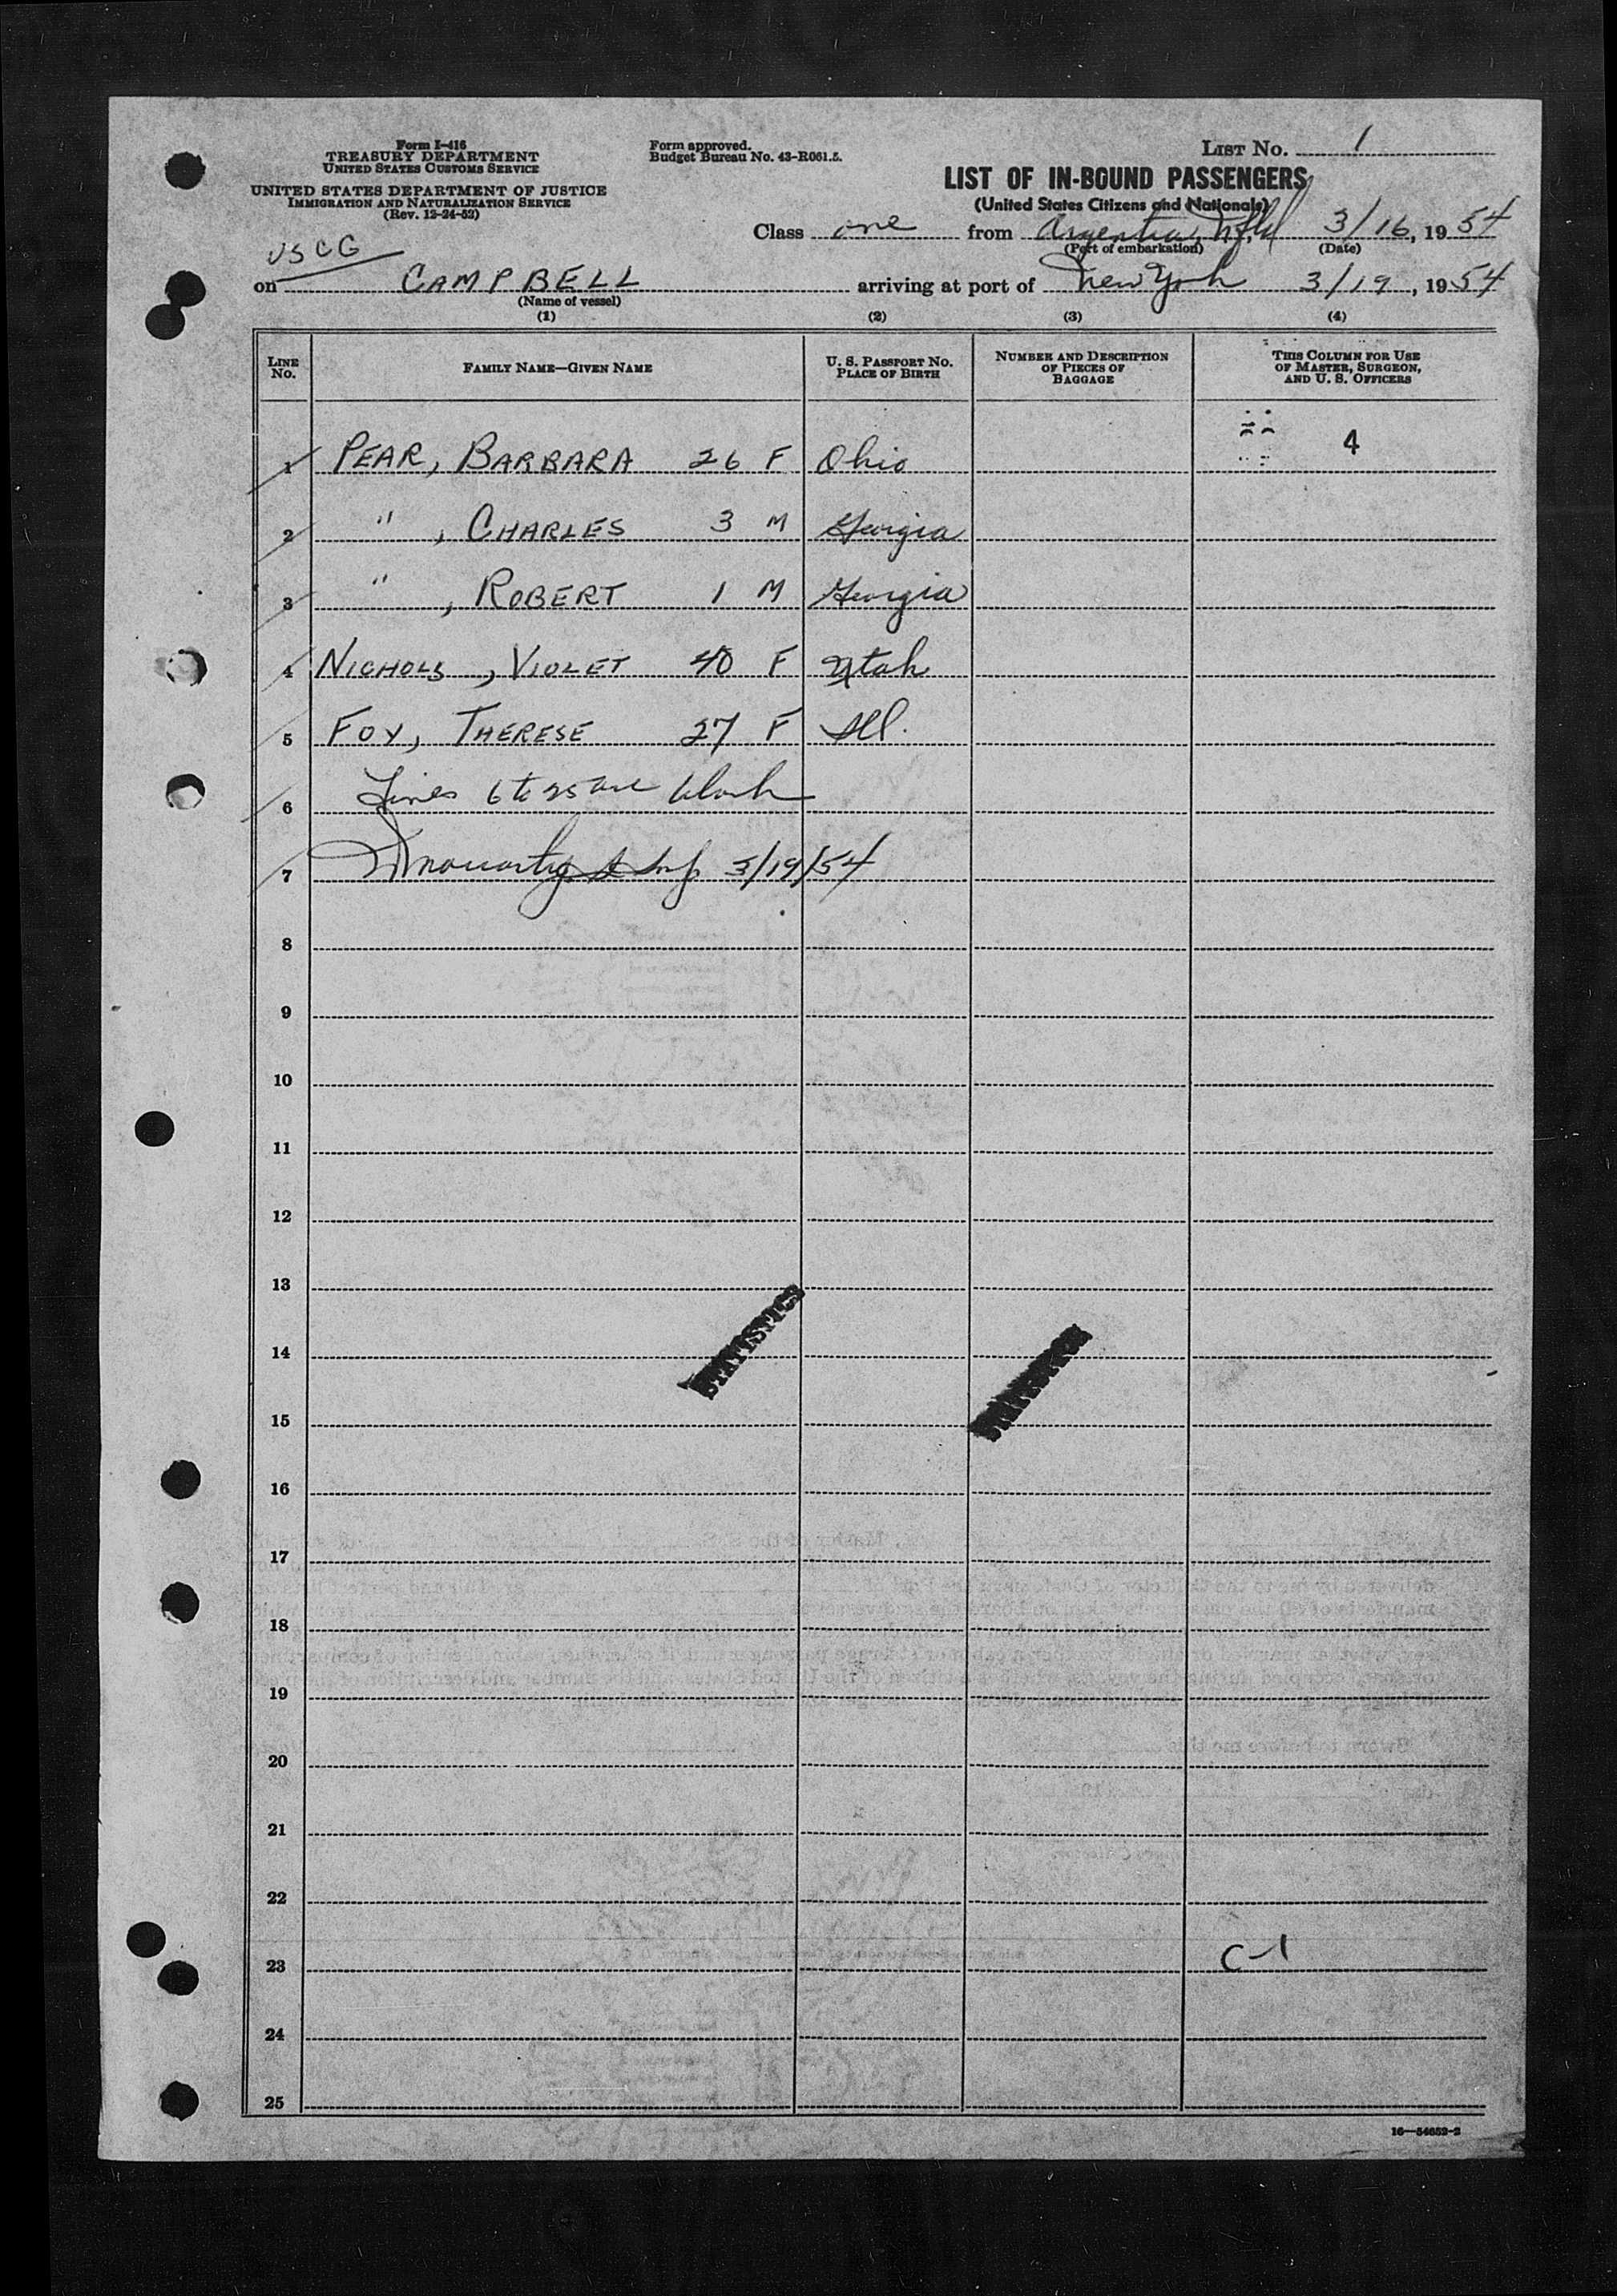 Form I-416
TREASURY DEPARTMENT
UNITED STATES CUSTOMS SERVICE
UNITED STATES DEPARTMENT OF JUSTICE
IMMIGRATION AND NATURALIZATION SERVICE
(Rev. 12-24-52)
Form approved.
Budget Bureau No. 43-R061.5.
LIST NO. 1
LIST OF IN-BOUND PASSENGERS
(United States Citizens and Nationals)
Class one from Argentia, Nfld 3/16, 1954
(Port of embarkation) (Date)
USCG
on CAMPBELL arriving at port of New York 3/19, 1954
(Name of vessel)
(1) (2) (3) (4)
LINE NO. FAMILY NAME—GIVEN NAME U. S. PASSPORT NO. PLACE OF BIRTH NUMBER AND DESCRIPTION OF PIECES OF BAGGAGE THIS COLUMN FOR USE OF MASTER, SURGEON, AND U. S. OFFICERS
4
1 PEAR, BARBARA 26 F Ohio
2 " , CHARLES 3 M Georgia
3 " , ROBERT 1 M Georgia
4 NICHOLS, VIOLET 40 F Utah
5 FOX, THERESE 27 F Ill.
6 Lines 6 to 25 are blank
7 3/19/54
8
9
10
11
12
13
STATISTICS
14
15
16
17
18
19
20
21
22
23 C-1
24
25
16—54652-2